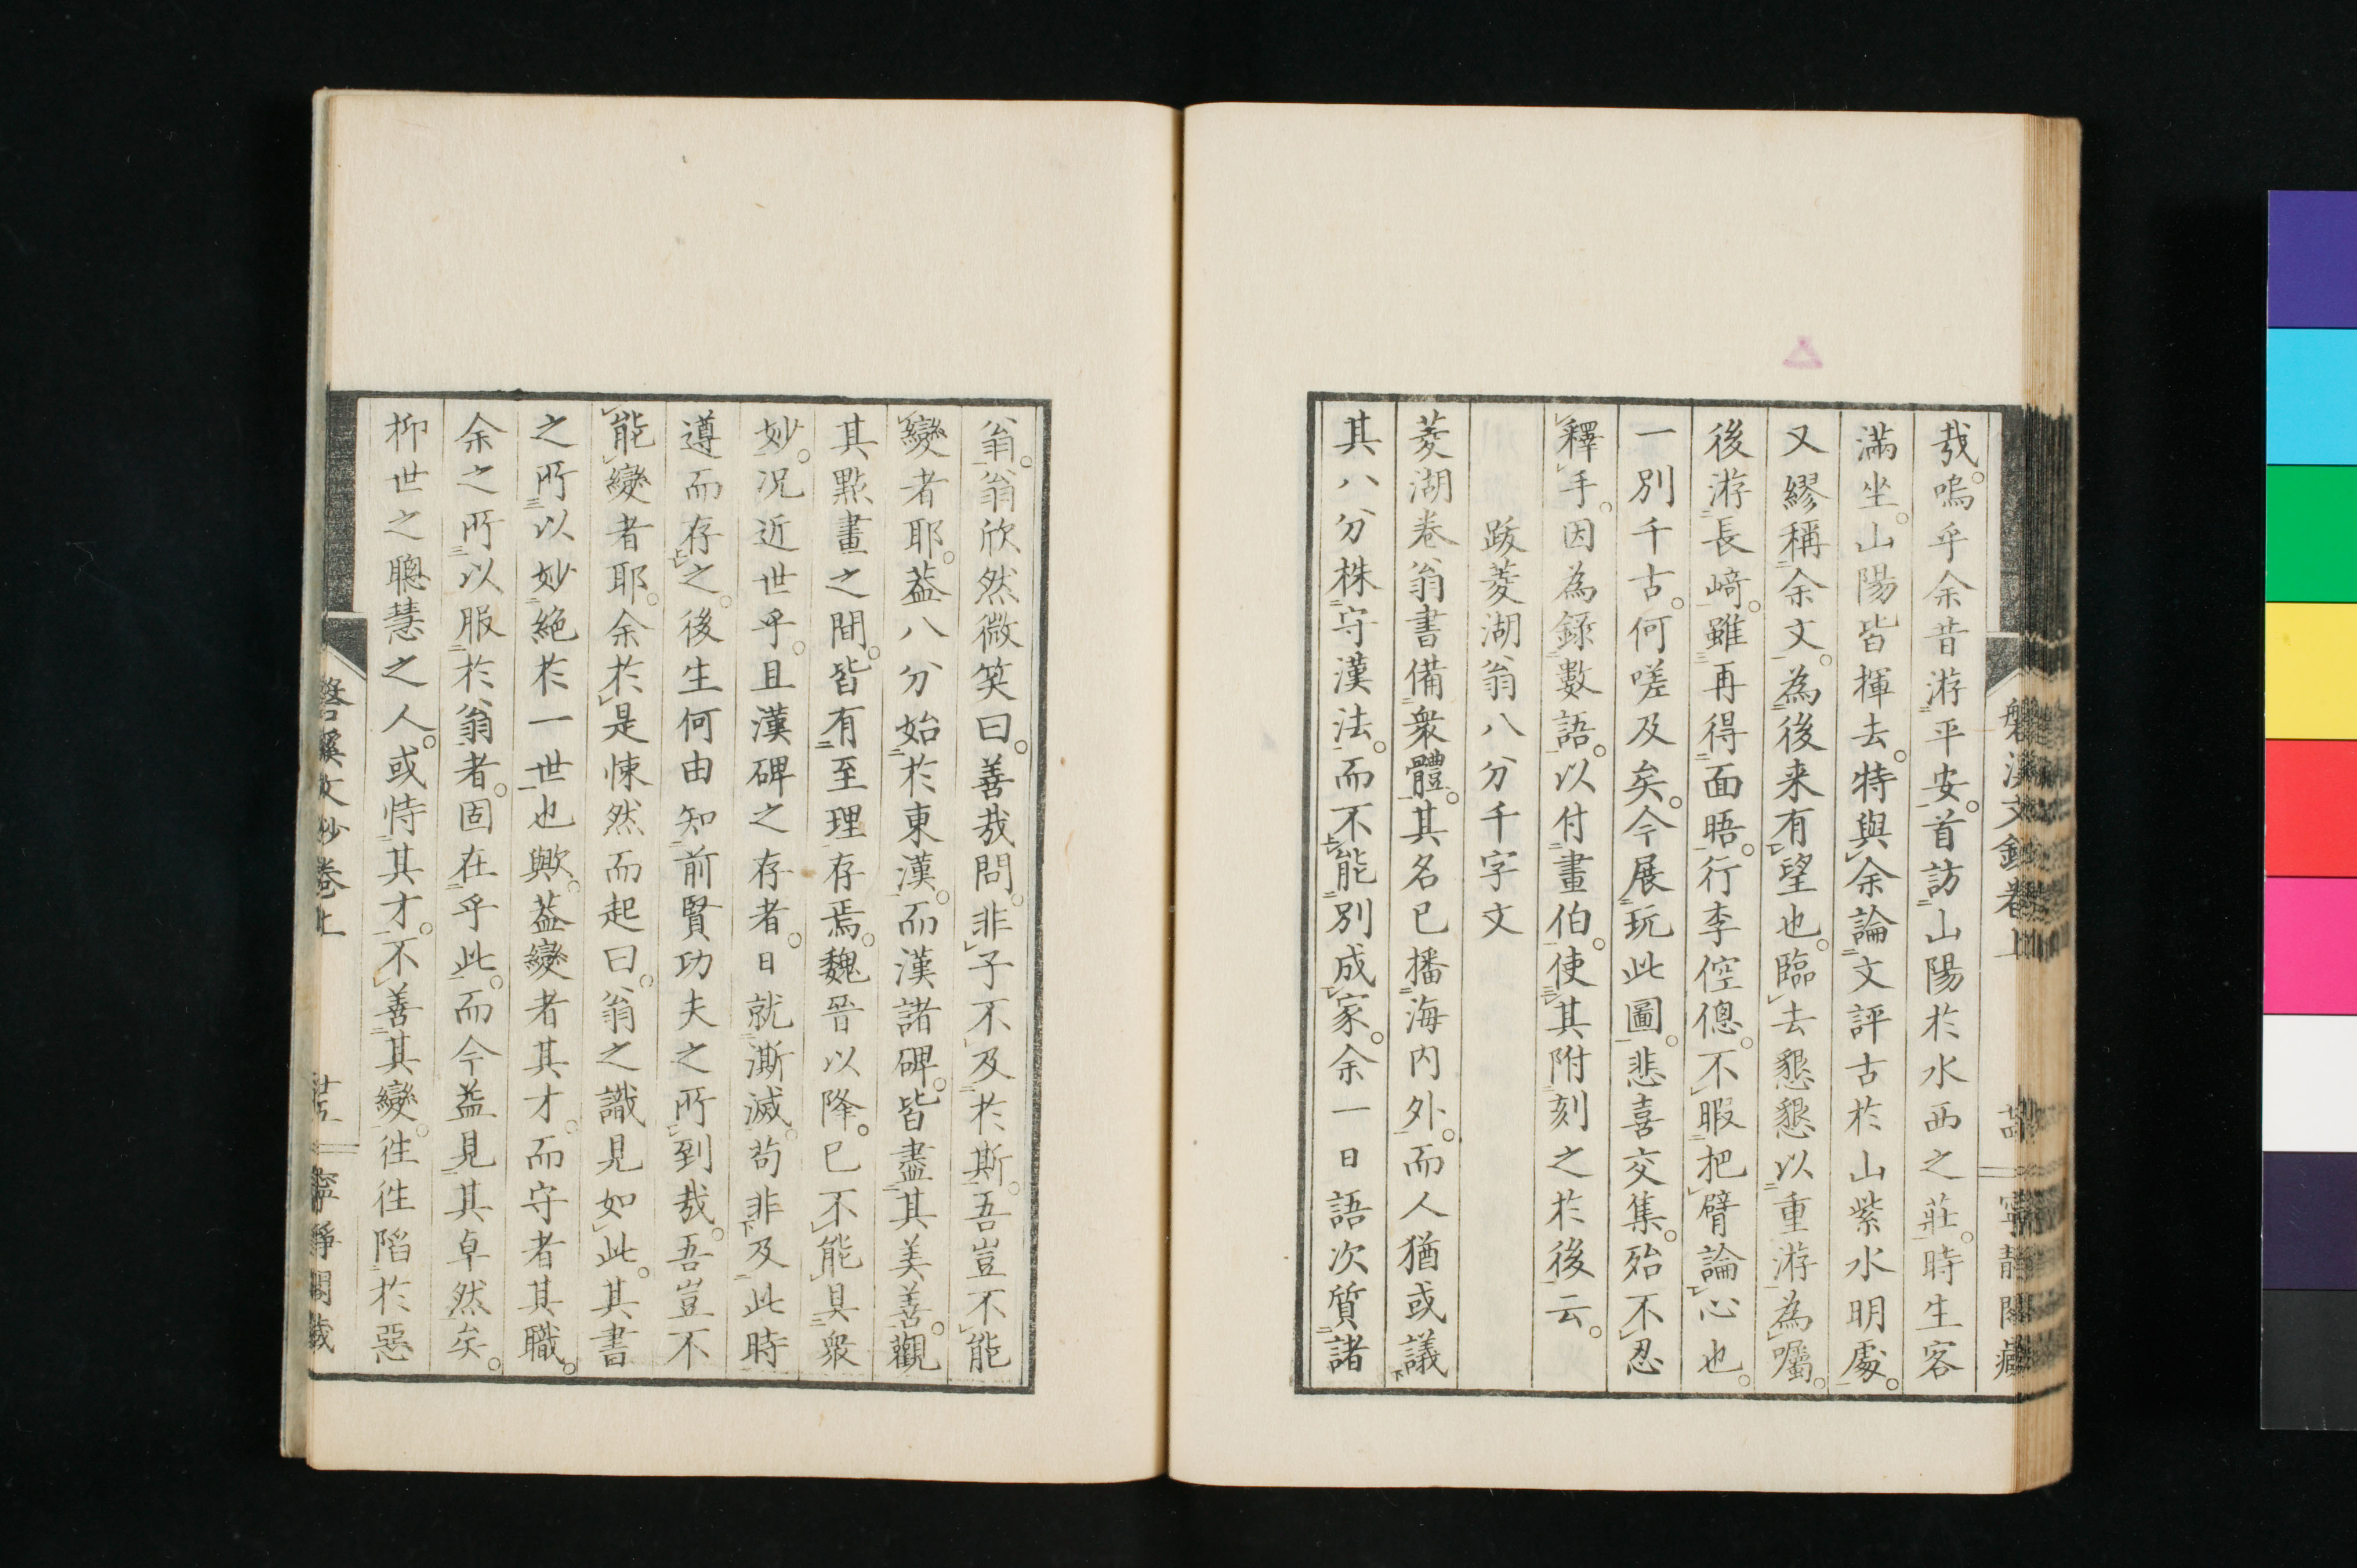 哉。嗚乎余昔游平安。首訪山陽於水西之莊。時生客
滿坐。山陽皆揮去。特與余論文評古於山紫水明處。
又繆稱余文。為後来有望也。臨去懇懇以重游為囑。
後游長﨑。雖再得面晤。行李倥偬。不暇把臂論心也。
一別千古。何嗟及矣。今展玩此圖。悲喜交集。殆不忍
釋手。因為錄數語。以付畫伯。使其附刻之於後云。
跋菱湖翁八分千字文
菱湖卷翁書備衆體。其名已播海内外。而人猶或議
其八分株守漢法。而不能別成家。余一日語次質諸
翁。翁欣然微笑曰。善哉問。非子不及於斯。吾豈不能
變者耶。葢八分始於東漢。而漢諸碑。皆盡其美善。觀
其點畫之間。皆有至理存焉。魏晉以降。已不能具衆
妙。况近世乎。且漢碑之存者。日就澌滅。苟非及此時
遵而存之。後生何由知前賢功夫之所到哉。吾豈不
能變者耶。余於是悚然而起曰。翁之識見如此。其書
之所以妙絶於一世也歟。葢變者其才。而守者其職。
余之所以服於翁者。固在乎此。而今益見其卓然矣。
抑世之聰慧之人。或恃其才。不善其變。徃徃陷於惡
磐溪文鈔卷上
寧靜閣藏